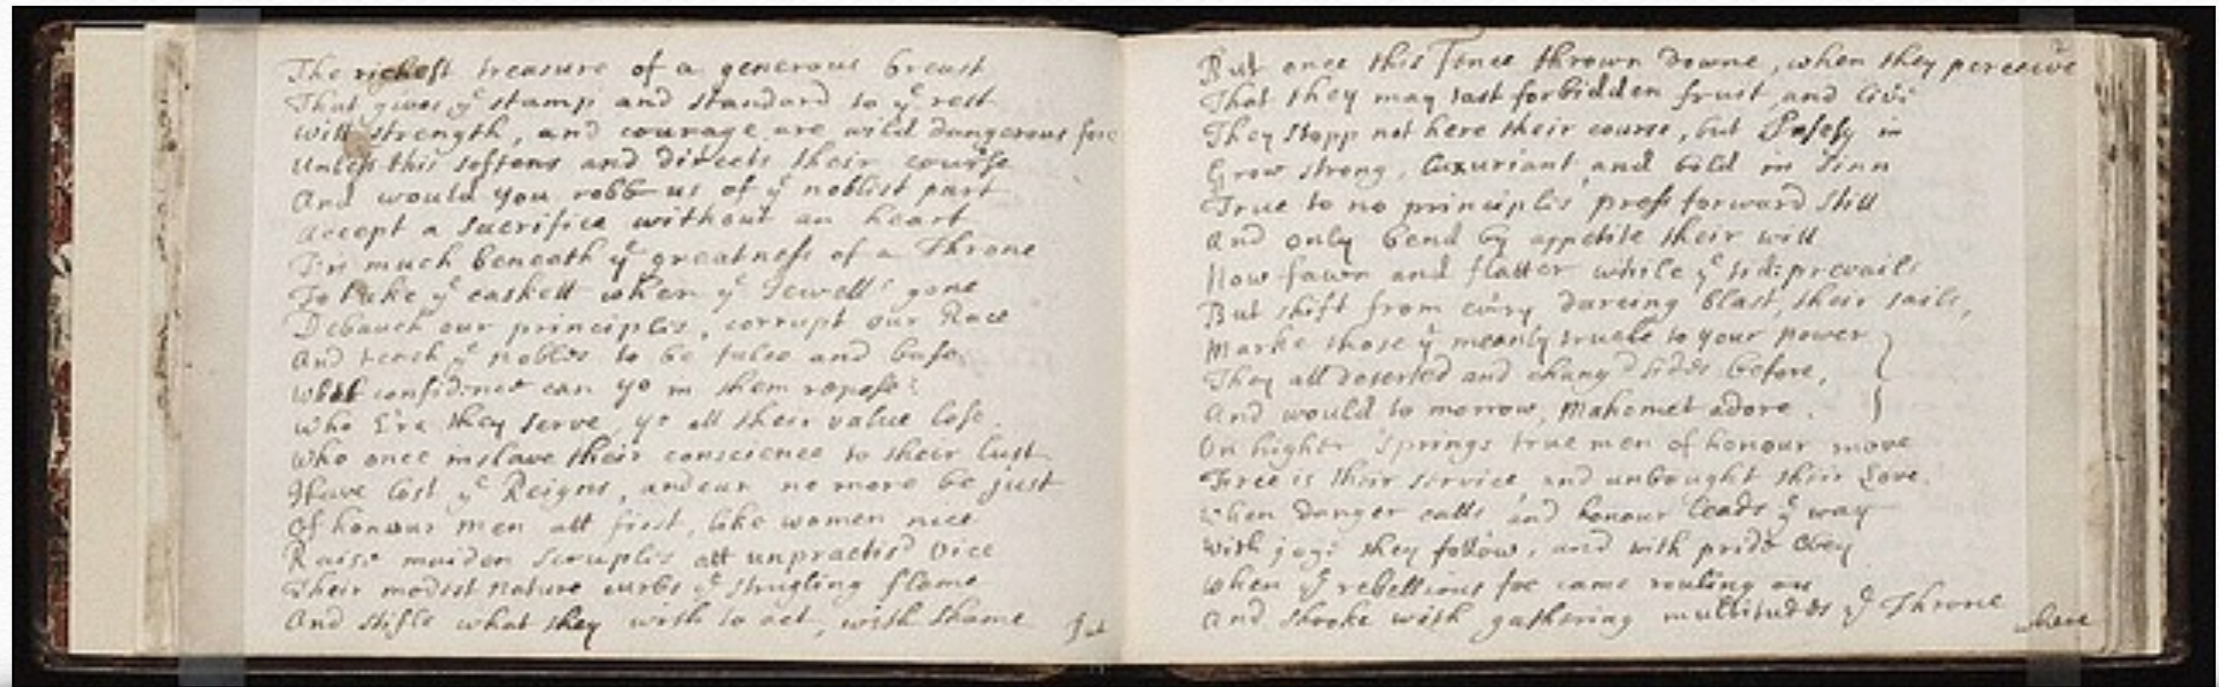 The richest treasure of a generous breast
That gives yᵉ stamp and standard to yᵉ rest
witt strength, and courage are wild dangerous forc
Unless this softens and directs their course
And would you robb us of yᵉ noblest part
Accept a sacrifice without an heart
T'is much beneath yᵉ greatness of a Throne
To take yᵉ caskett when yᵉ Jewell's gone
Debauch our principles, corrupt our Race
And teach yᵉ nobles to be false and base
What confidence can yo in them repose?
Who E're they serve, yo all their value lose.
Who once inslave their conscience to their lust
Have lost yᵉ Reigns, and can no more be just
Of honour men att first, like women nice
Raise maiden scruples att unpractis'd vice
Their modest nature curbs yᵉ strugling flame
And stifle what they wish to act, with shame
But
2
But once this fence thrown downe, when they perceive
That they may tast forbidden fruit and live
They stopp not here their course, but safely in
Grow strong, luxuriant, and bold in Sinn
True to no principles press forward still
And only bend by appetite their will
Now fawn and flatter while yᵉ tide prevails
But shift from every dareing blast, their sails,
Marke those yᵗ meanly truckle to your power
They all deserted and chang'd sides before,
And would to morrow, Mahomet adore.
On higher Springs true men of honour move
Free is their service and unbought their Love.
When danger calls and honour leads yᵉ way
With joy they follow, and with pride obey
When yᵉ rebellious foe came rouling on
And shooke with gathering multitudes yᵉ Throne
where